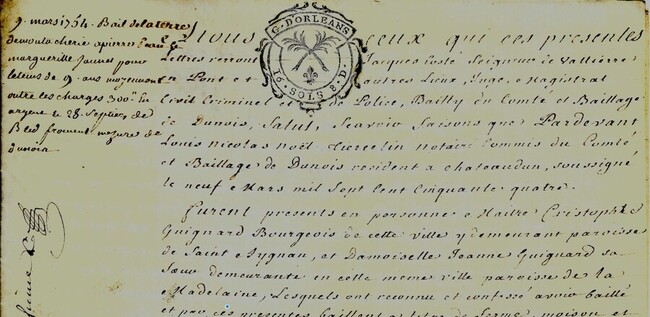 9. mars 1754. Bail de la terre
de moutacherie a pierre
margueritte pour
le tems de 9. ans moyennant
outre les charges 300lt. en
argent et 28. septiers de
Bled froment mezure de
dunois
G. D'ORLEANS
16 SOLS 8. D
A Tous ceux qui ces presentes
Lettres verront Jacques Costé Seigneur de Vallierre
en Pont et autres Lieux, Juge, Magistrat
Civil Criminel et de Police, Bailly du Comté et Bailliage
de Dunois, Salut, Scavoir faisons que Pardevant
Louis Nicolas Noël notaire Commis du Comté
et Bailliage de Dunois resident a chateaudun, soussigné
le neuf Mars mil Sept Cent Cinquante quatre.
Furent presents en personne Maitre Cristophe
Guignard Bourgeois de cette ville y demeurant paroisse
de Saint Aygnan, et Damoiselle Jeanne Guignard sa
Sœur demeurante en cette meme ville paroisse de la
Madelaine, Lesquels ont reconnu et confessé avoir baillé
et par ces presentes baillent a titre de ferme, moison et